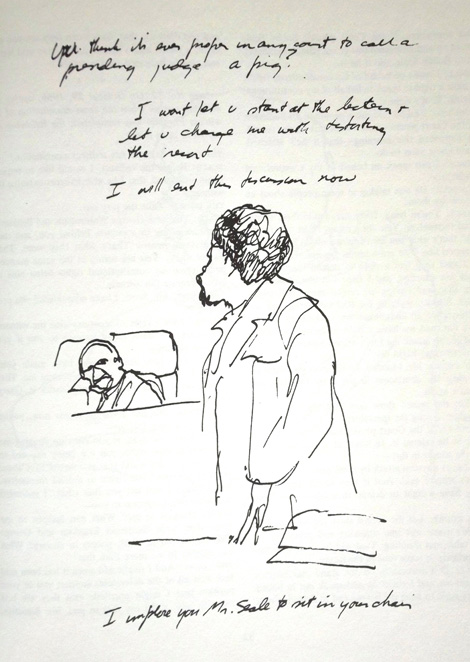 think it's ever proper in any court to call a
presiding judge a pig?
I wont let u stand at the lectern +
let u charge me with distorting
the record
I will end this discussion now
I implore you Mr. Seale to sit in your chair